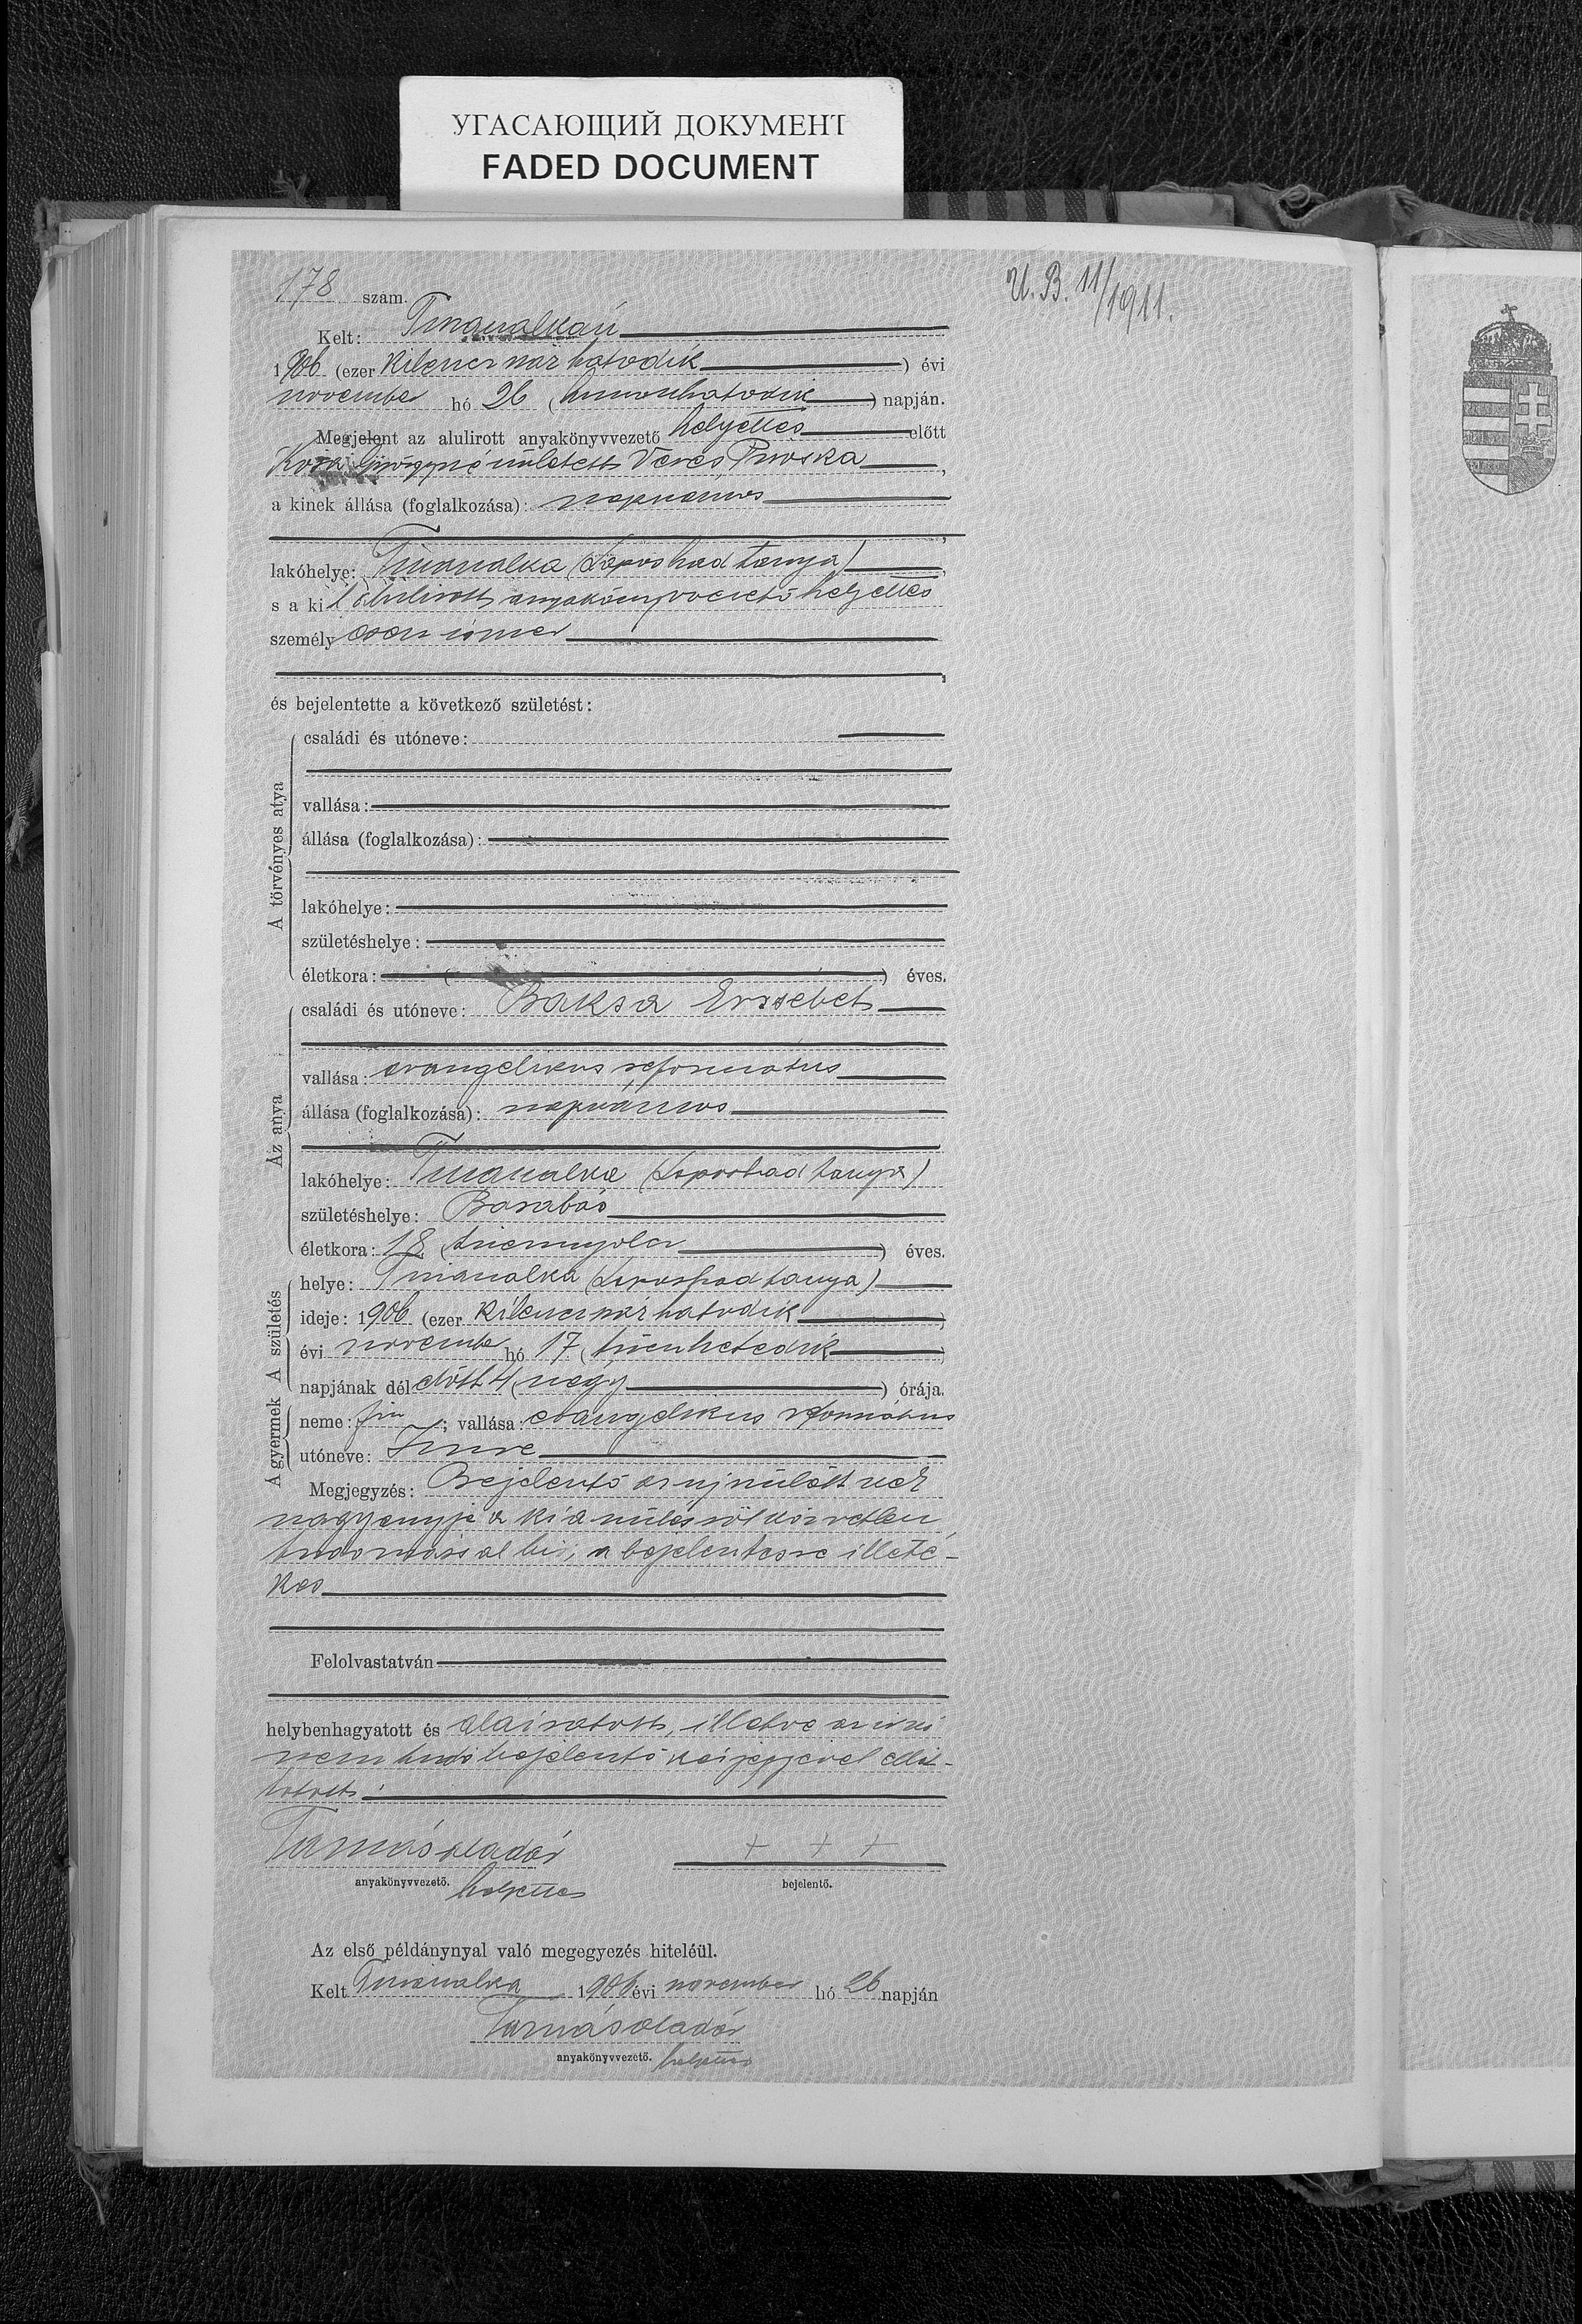 УГАСАЮЩИЙ ДОКУМЕНТ
FADED DOCUMENT
178 szám.
U. B. 11/1911.
Kelt: Tiszasalkán
1906 (ezer kilenczszáz hatodik) évi
november hó 26 (huszonhatodik) napján.
Megjelent az alulirott anyakönyvvezető helyettes előtt
Kósa Györgyné született Veres Piroska,
a kinek állása (foglalkozása): napszámos
lakóhelye: (Laposhad tanya),
s a kit alulirott anyakönyvvezető helyettes
személyesen ismer
és bejelentette a következő születést:
A törvényes atya
családi és utóneve:
vallása:
állása (foglalkozása):
lakóhelye:
születéshelye:
életkora: ( ) éves.
Az anya
családi és utóneve: Baksa Erzsébet
vallása: evangelikus református
állása (foglalkozása): napszámos
lakóhelye: (Laposhad tanya)
születéshelye: Barabás
életkora: 18 (tizennyolcz) éves.
A születés
helye: (Laposhad tanya)
ideje: 1906 (ezer kilenczszáz hatodik)
évi november hó 17 (tizenhetedik)
napjának délelőtt 4 (négy) órája.
A gyermek
neme: fiu; vallása: evangelikus református
utóneve: Imre
Megjegyzés: Bejelentő az ujszülöttnek
nagyanyja s ki a szülésről közvetlen
tudomással bir, a bejelentésre illeté-
kes
Felolvastatván
helybenhagyatott és aláiratott, illetve az irni
nem tudó bejelentő kézjegyével ellát-
tatott:
Tamás Aladár + + +
anyakönyvvezető. helyettes bejelentő.
Az első példánynyal való megegyezés hiteléül.
Kelt 1906 évi november hó 26 napján
Tamás Aladár
anyakönyvvezető. helyettes